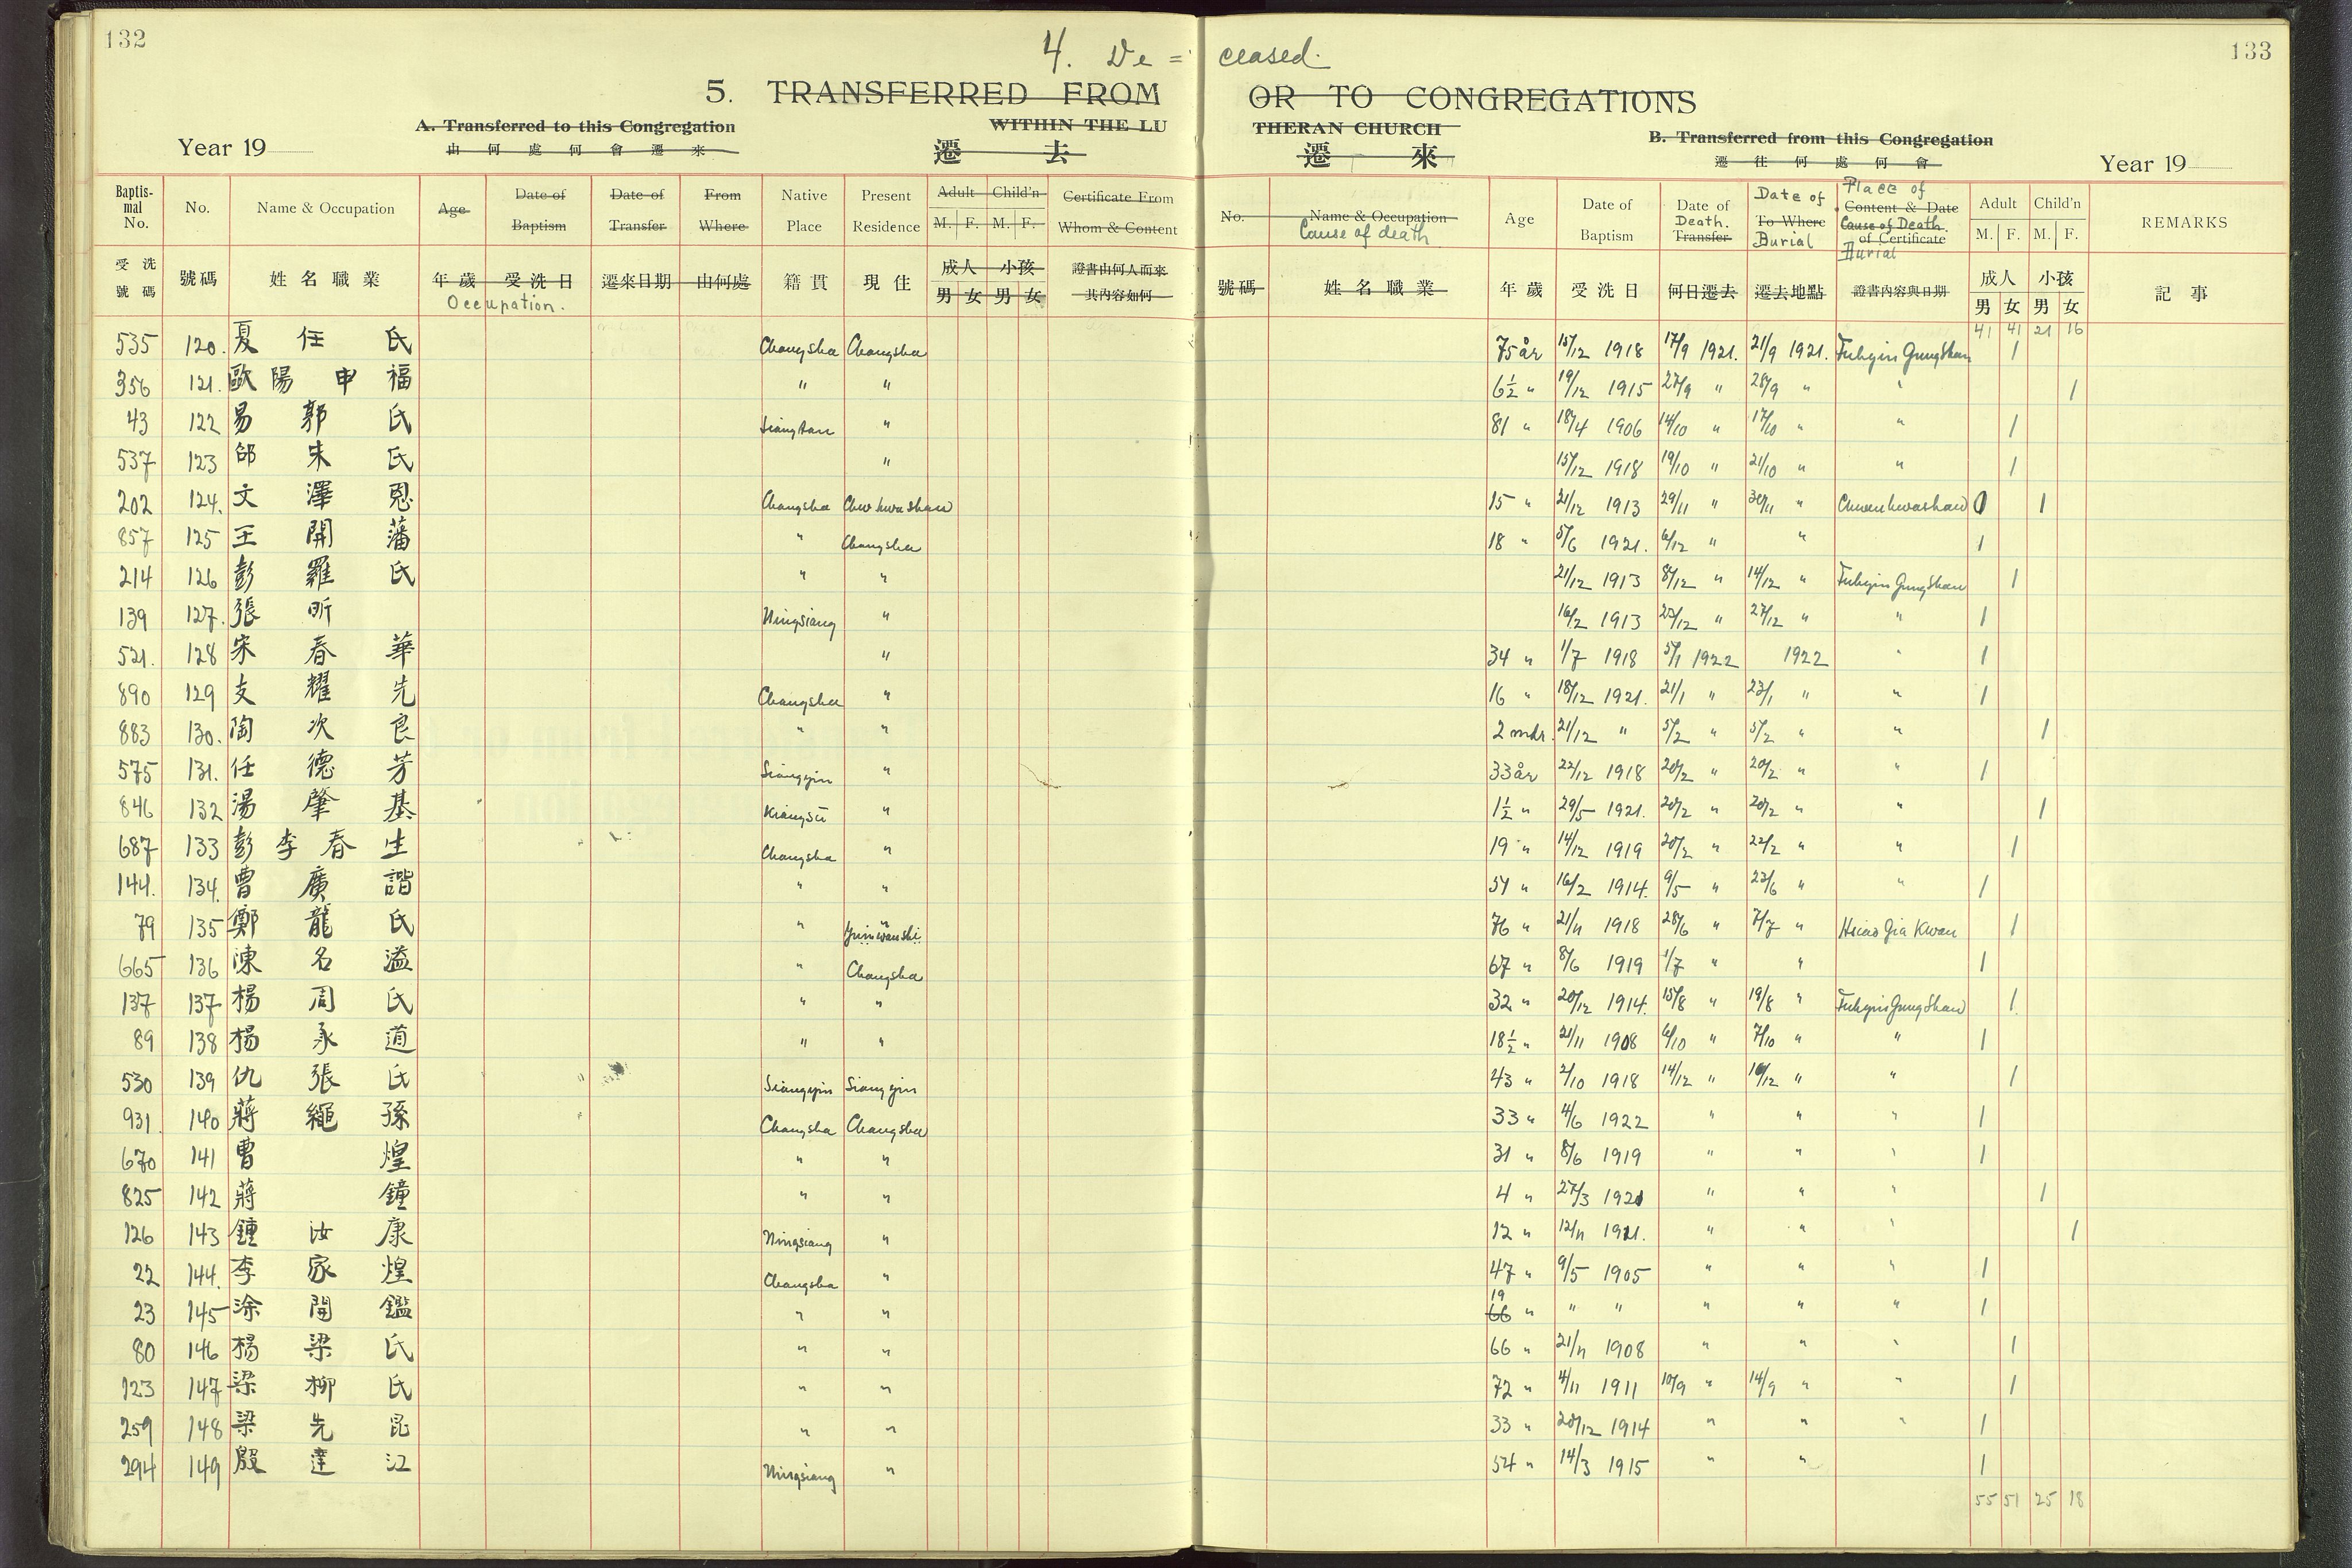 132
4. De = ceased.
133
5. TRANSFERRED FROM OR TO CONGREGATIONS
A. Transferred to this Congregation WITHIN THE LU THERAN CHURCH B. Transferred from this Congregation
Year 19 由何處何會遷來 遷去 遷來 遷往何處何會 Year 19
Baptismal No. No. Name & Occupation Age Date of Baptism Date of Transfer From Where Native Place Present Residence Adult M. F. Child'n M. F. Certificate From Whom & Content
No. Name & Occupation Cause of death Age Date of Baptism Date of Death. Transfer Date of To Where Burial Place of Content & Date Cause of Death. of Certificate Burial Adult M. F. Child'n M. F. REMARKS
受洗號碼 號碼 姓名職業 年歲 受洗日 Occupation. 遷來日期 由何處 籍貫 現住 成人 男 女 小孩 男 女 證書由何人而來其內容如何
號碼 姓名職業 年歲 受洗日 何日遷去 遷去地點 證書內容與日期 成人 男 女 小孩 男 女 記事
41 41 21 16
535 120. 夏任氏 Changsha Changsha 75 år 15/12 1918 17/9 1921. 21/9 1921. Fuhyin Gung Shan 1
356 121. 歐陽申福 " " 6½ " 19/12 1915 27/9 " 28/9 " " 1
43 122 易郭氏 Siangtan " 81 " 18/4 1906 14/10 " 17/10 " " 1
537 123 邱朱氏 " 15/12 1918 19/10 " 21/10 " " 1
202 124. 文澤恩 Changsha 15 " 21/12 1913 29/11 " 30/11 " Chwenhwashan 1
857 125 王開藩 " Changsha 18 " 5/6 1921. 6/12 " " 1
214 126 彭羅氏 " " 21/12 1913 8/12 " 14/12 " Fuhyin Gung Shan 1
139 127. 張昕 Ningsiang " 16/2 1913 25/12 " 27/12 " " 1
521. 128 宋春華 " 34 " 1/7 1918 5/1 1922 1922 " 1
890 129 支耀先 Changsha " 16 " 18/12 1921. 21/1 " 23/1 " " 1
883 130. 陶次良 " " 2 mdr. 21/12 " 5/2 " 5/2 " " 1
575 131. 任德芳 Siangyin " 33 år 22/12 1918 20/2 " 20/2 " " 1
846 132 湯肇基 Kiangsü " 1½ " 29/5 1921. 20/2 " 20/2 " " 1
687 133 彭李春生 Changsha " 19 " 14/12 1919 20/2 " 22/2 " " 1
144. 134. 曹廣諧 " " 57 " 16/2 1914. 9/5 " 23/6 " " 1
79 135 鄭龍氏 " 76 " 21/11 1918 28/6 " 7/7 " Hsiao Gia Kwan 1
665 136 陳名溢 " Changsha 67 " 8/6 1919 1/7 " " 1
137 137 楊周氏 " " 32 " 20/12 1914. 15/8 " 19/8 " Fuhyin Gung Shan 1.
89 138 楊承道 " " 18½ " 21/11 1908 6/10 " 7/10 " " 1
530 139 仇張氏 Siangyin Siangyin 43 " 2/10 1918 14/12 " 16/12 " " 1
931. 140 蔣繩孫 Changsha Changsha 33 " 4/6 1922 " " " 1
670 141 曹煌 " " 31 " 8/6 1919 " " " 1
825 142 蔣鐘 " " 4 " 27/3 1921 " " " 1
126 143 鍾汝康 Ningsiang " 12 " 12/11 1911. " " " 1
22 144. 李家煌 Changsha " 47 " 9/5 1905 " " " 1
23 145 涂開鑑 " " 19 66 " " " " " " 1
80 146 楊梁氏 " " 66 " 21/11 1908 " " " 1
123 147 梁柳氏 " " 72 " 4/11 1911 10/9 " 14/9 " " 1
259 148 梁先昆 " " 33 " 20/12 1914 " " " 1
294 149 殷達江 Ningsiang " 54 " 14/3 1915 " " 1
55 51 25 18